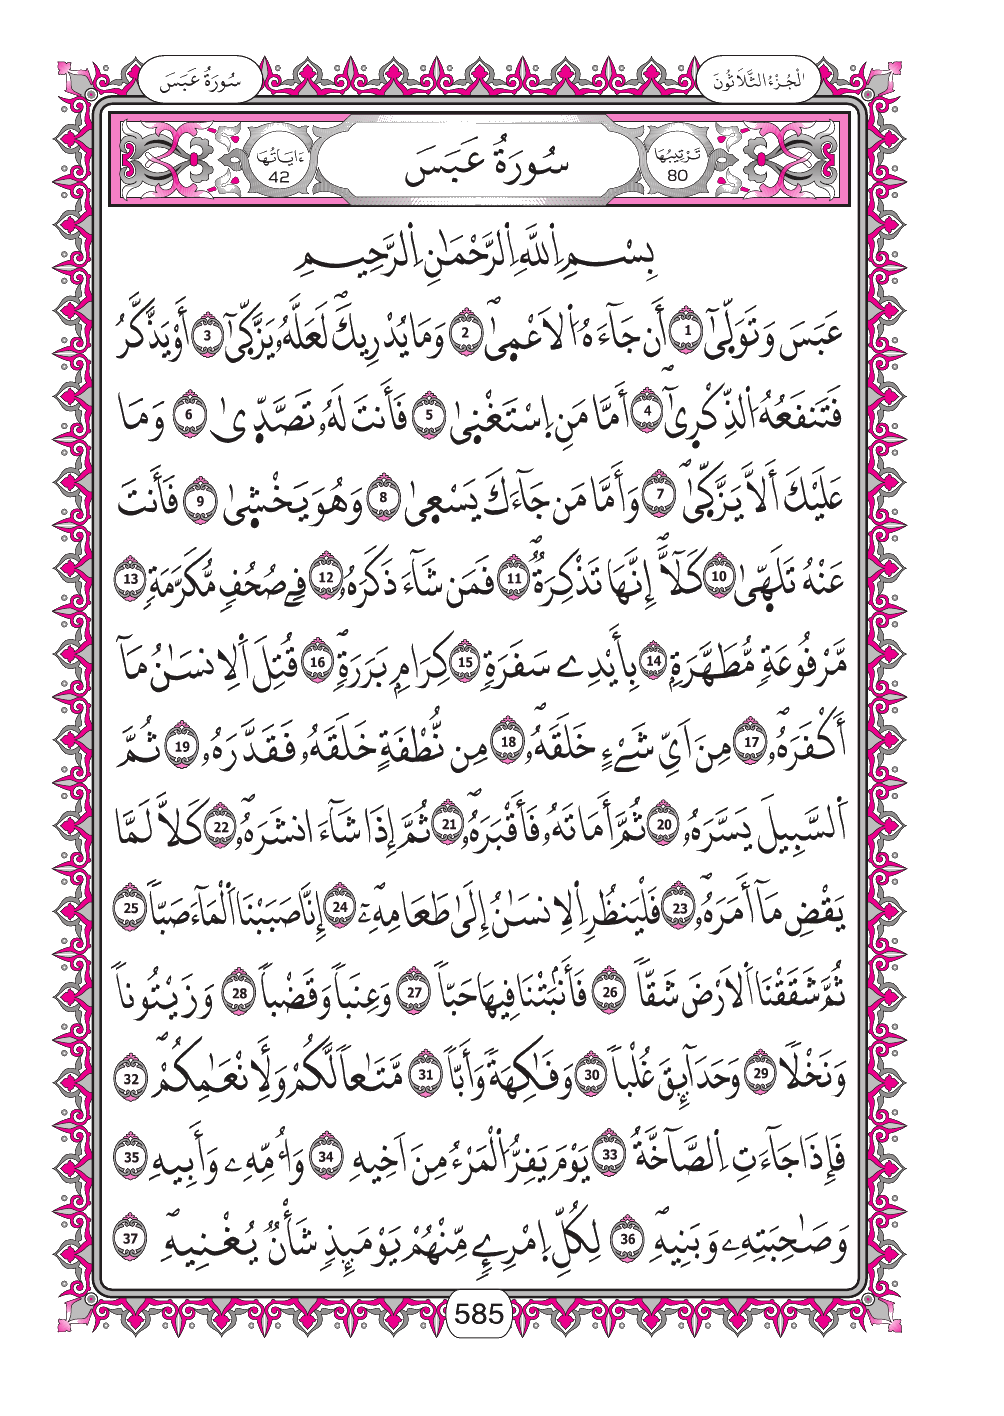 الْجُزْءُ الثَّلَاثُونَ
سُورَةُ عَبَسَ
تَرْتِيبُهَا 80
سُورَةُ عَبَسَ
ءَايَاتُهَا 42
بِسْمِ اِ۬للَّهِ اِ۬لرَّحْمَٰنِ اِ۬لرَّحِيمِ
عَبَسَ وَتَوَلّ۪ىٰٓ 1 أَن جَآءَهُ اُ۬لَاعْم۪ىٰۖ 2 وَمَا يُدْرِيكَۖ لَعَلَّهُۥ يَزَّكّ۪ىٰٓ 3 أَوْ يَذَّكَّرُ
فَتَنفَعُهُ اُ۬لذِّكْر۪ىٰٓۖ 4 أَمَّا مَنِ اِ۪سْتَغْن۪ىٰ 5 فَأَنتَ لَهُۥ تَصَّدّ۪ىٰ 6 وَمَا
عَلَيْكَ أَلَّا يَزَّكّ۪ىٰۖ 7 وَأَمَّا مَن جَآءَكَ يَسْع۪ىٰ 8 وَهُوَ يَخْش۪ىٰ 9 فَأَنتَ
عَنْهُ تَلَهّ۪ىٰ 10 كَلَّآۖ إِنَّهَا تَذْكِرَةٌۖ 11 فَمَن شَآءَ ذَكَرَهُۥۖ 12 فِے صُحُفٍ مُّكَرَّمَةٍ 13
مَّرْفُوعَةٍ مُّطَهَّرَةٍۢ 14 بِأَيْدِے سَفَرَةٍ 15 كِرَامٍۢ بَرَرَةٍۖ 16 قُتِلَ اَ۬لِانسَٰنُ مَآ
أَكْفَرَهُۥۖ 17 مِنَ اَيِّ شَےْءٍ خَلَقَهُۥۖ 18 مِن نُّطْفَةٍ خَلَقَهُۥ فَقَدَّرَهُۥ 19 ثُمَّ
اَ۬لسَّبِيلَ يَسَّرَهُۥ 20 ثُمَّ أَمَاتَهُۥ فَأَقْبَرَهُۥۖ 21 ثُمَّ إِذَا شَآءَ انشَرَهُۥۖ 22 كَلَّا لَمَّا
يَقْضِ مَآ أَمَرَهُۥۖ 23 فَلْيَنظُرِ اِ۬لِانسَٰنُ إِلَىٰ طَعَامِهِۦٓۖ 24 إِنَّا صَبَبْنَا اَ۬لْمَآءَ صَبّاً 25
ثُمَّ شَقَقْنَا اَ۬لَارْضَ شَقّاً 26 فَأَنۢبَتْنَا فِيهَا حَبّاً 27 وَعِنَباً وَقَضْباً 28 وَزَيْتُوناً
وَنَخْلًا 29 وَحَدَآئِقَ غُلْباً 30 وَفَٰكِهَةً وَأَبّاً 31 مَّتَٰعاً لَّكُمْ وَلِأَنْعَٰمِكُمْۖ 32
فَإِذَا جَآءَتِ اِ۬لصَّآخَّةُ 33 يَوْمَ يَفِرُّ اُ۬لْمَرْءُ مِنَ اَخِيهِ 34 وَأُمِّهِۦ وَأَبِيهِ 35
وَصَٰحِبَتِهِۦ وَبَنِيهِۖ 36 لِكُلِّ اِ۪مْرِےٍٕ مِّنْهُمْ يَوْمَئِذٍ شَأْنٌ يُغْنِيهِۖ 37
585